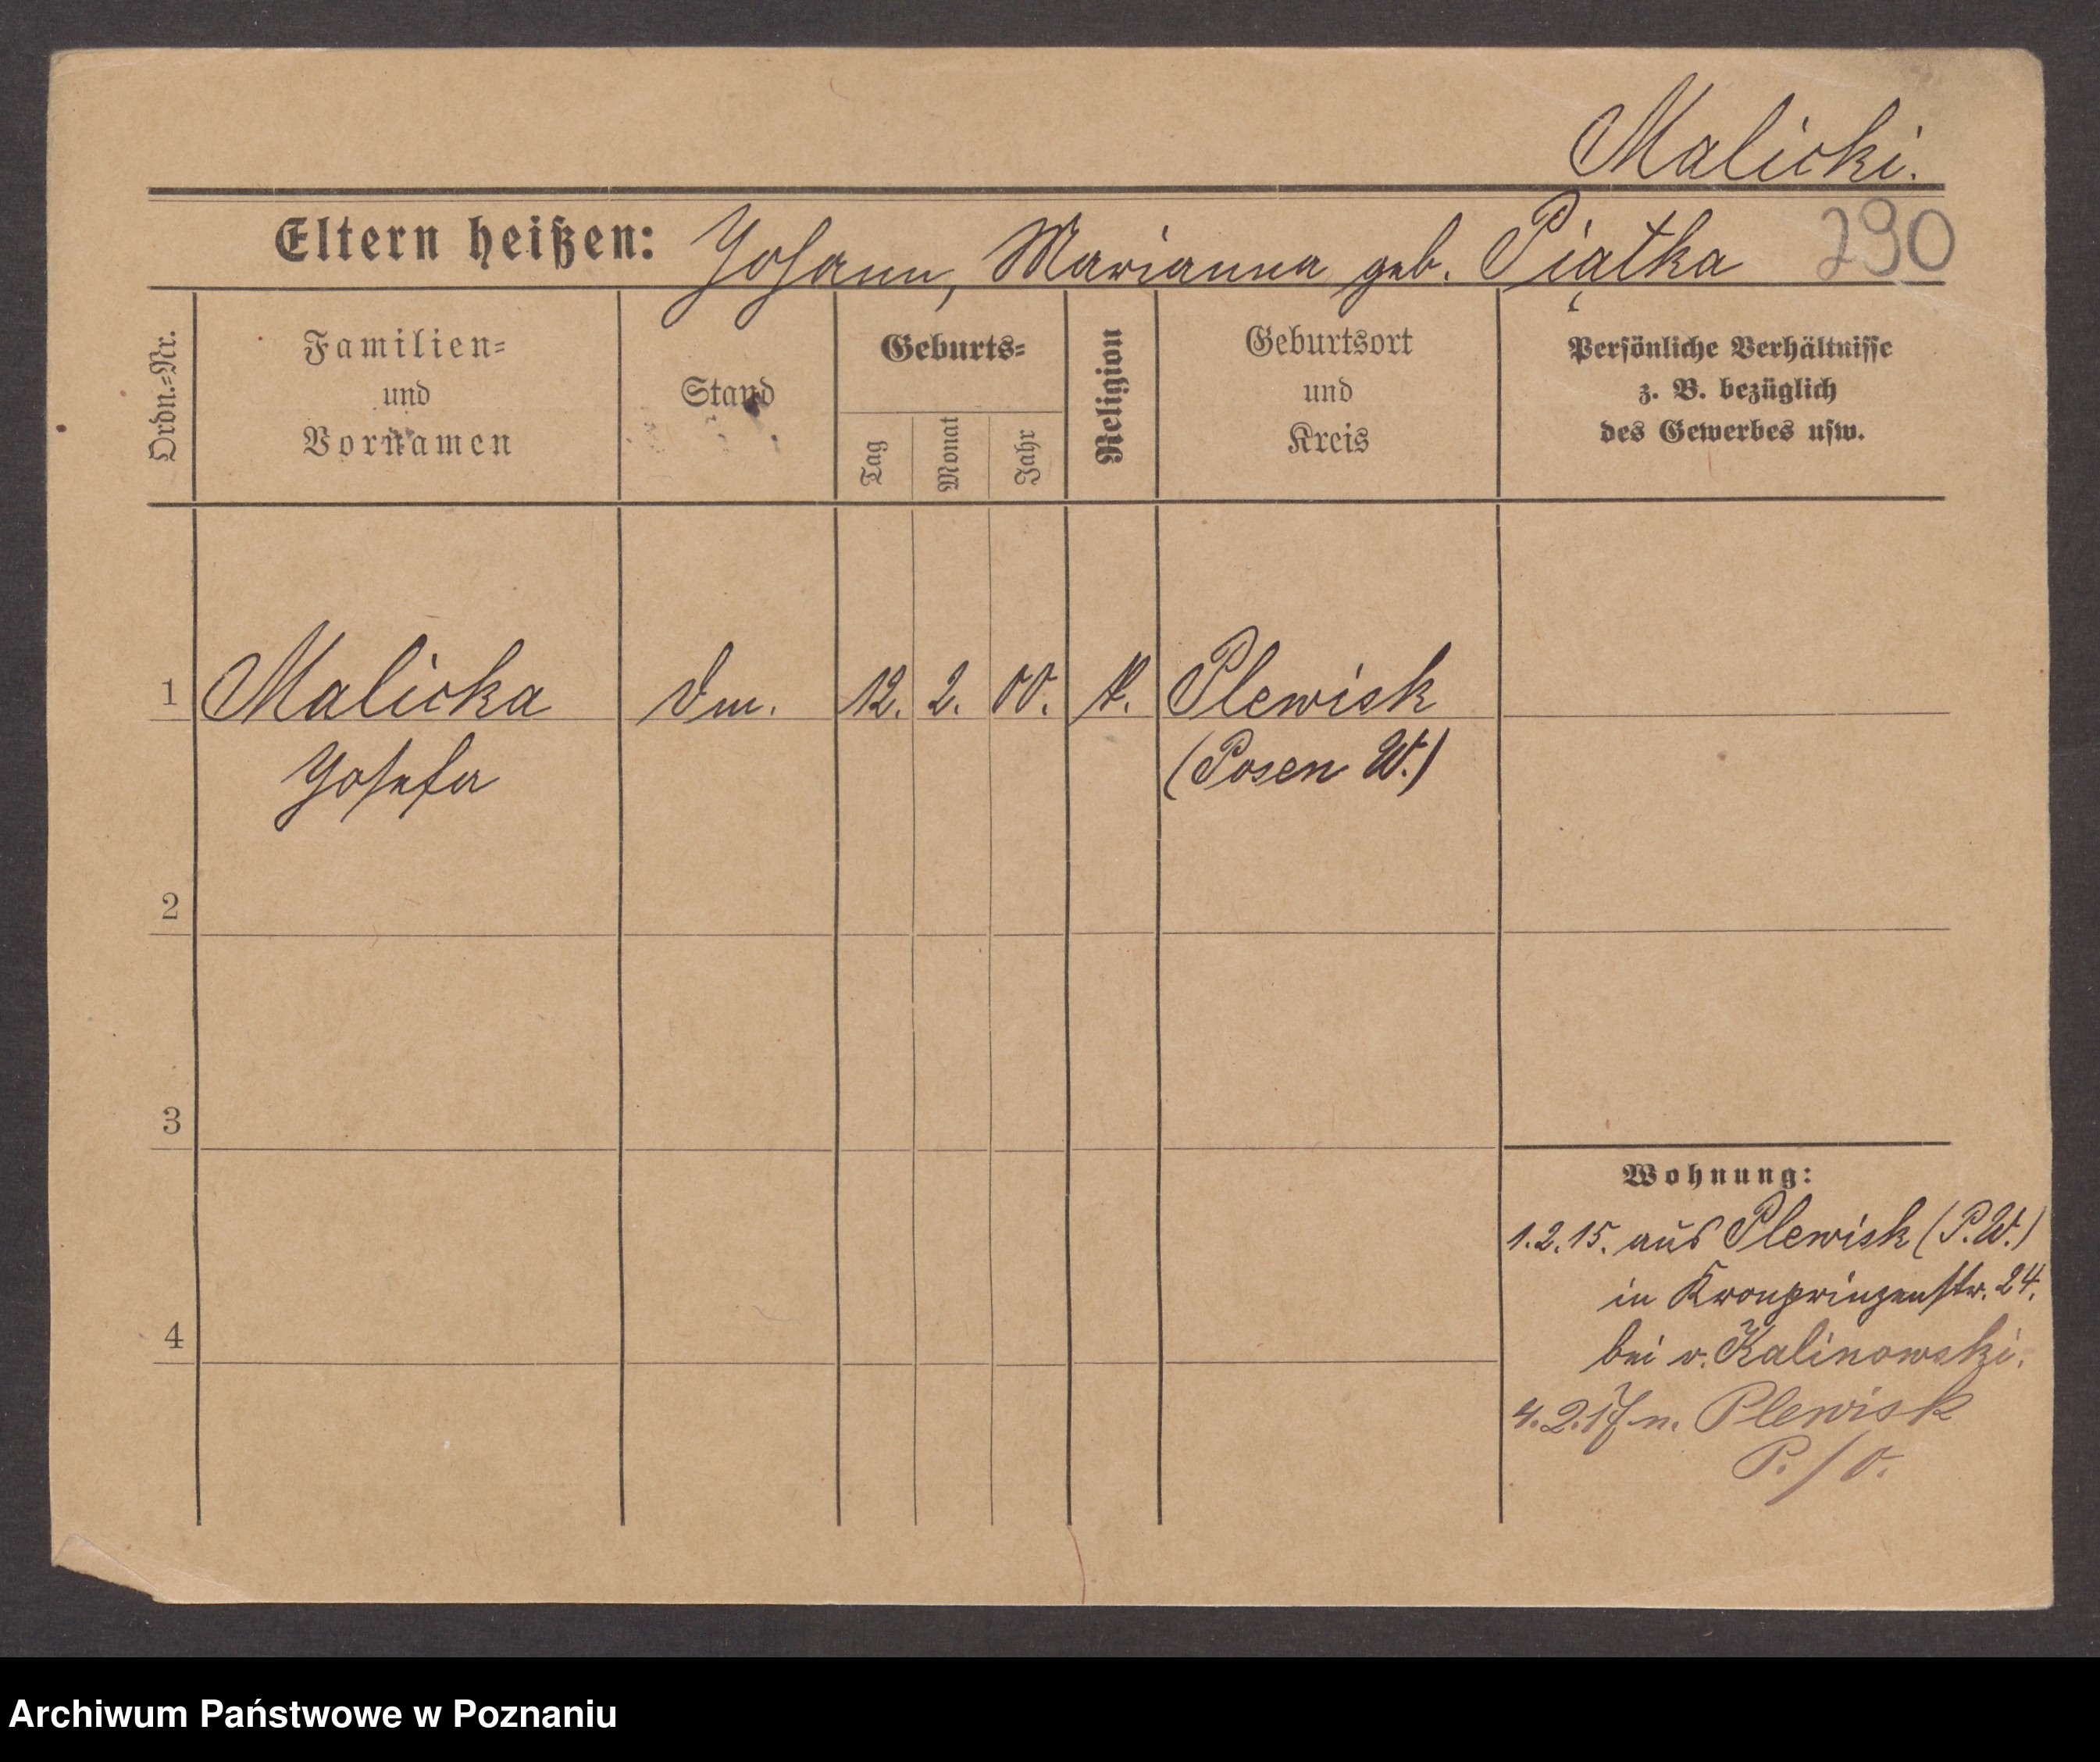 Malicki.
Eltern heißen: Johann, Marianna geb. Piątka 290
Ordn.-Nr.
Familien-
und
Vornamen
Stand
Geburts-
Tag
Monat
Jahr
Religion
Geburtsort
und
Kreis
Persönliche Verhältnisse
z. B. bezüglich
des Gewerbes usw.
1 Malicka Dm. 12. 2. 00. k. Plewisk
Josefa (Posen W.)
2
3
4
Wohnung:
1.2.15. aus Plewisk (P.W.)
in Kronprinzenstr. 24.
bei v. Kalinowski.
4.2.17 n. Plewisk
P./O.
Archiwum Państwowe w Poznaniu